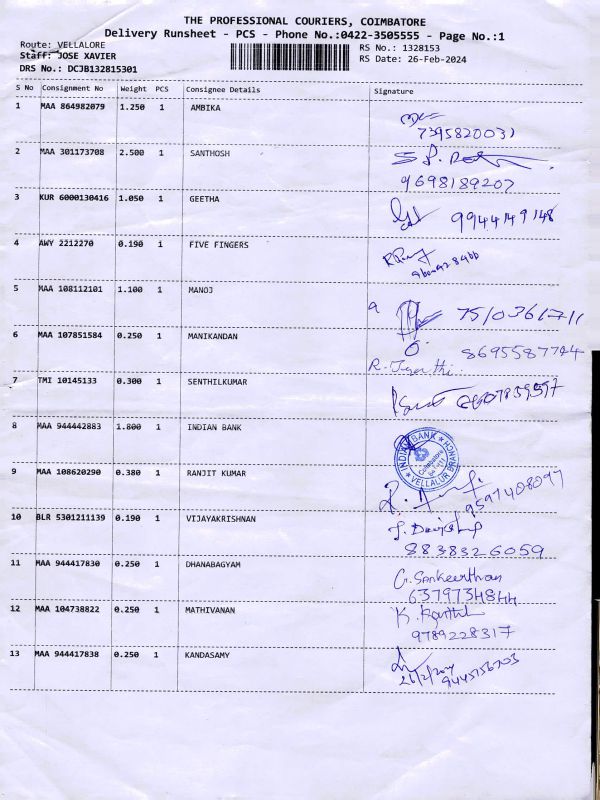 THE PROFESSIONAL COURIERS, COIMBATORE
Delivery Runsheet - PCS - Phone No.:0422-3505555 - Page No.:1
Route: VELLALORE
Staff: JOSE XAVIER
DRS No.: DCJB132815301
RS No.: 1328153
RS Date: 26-Feb-2024
S No Consignment No Weight PCS Consignee Details Signature
1 MAA 864982079 1.250 1 AMBIKA
7395820031
2 MAA 301173708 2.500 1 SANTHOSH
9698189207
3 KUR 6000130416 1.050 1 GEETHA
9944149148
4 AWY 2212270 0.190 1 FIVE FINGERS
5 MAA 108112101 1.100 1 MANOJ
7510361711
6 MAA 107851584 0.250 1 MANIKANDAN
8695587744
R. Jyothi.
7 TMI 10145133 0.300 1 SENTHILKUMAR
8 MAA 944442883 1.800 1 INDIAN BANK
INDIAN BANK
Coimbatore
VELLALUR BRANCH
9 MAA 108620290 0.380 1 RANJIT KUMAR
9597408097
10 BLR 5301211139 0.190 1 VIJAYAKRISHNAN
8838326059
11 MAA 944417830 0.250 1 DHANABAGYAM
G. Sankeerthan
6379734844
12 MAA 104738822 0.250 1 MATHIVANAN
K. Karthik
9789228317
13 MAA 944417838 0.250 1 KANDASAMY
26/2/2024
9445156703